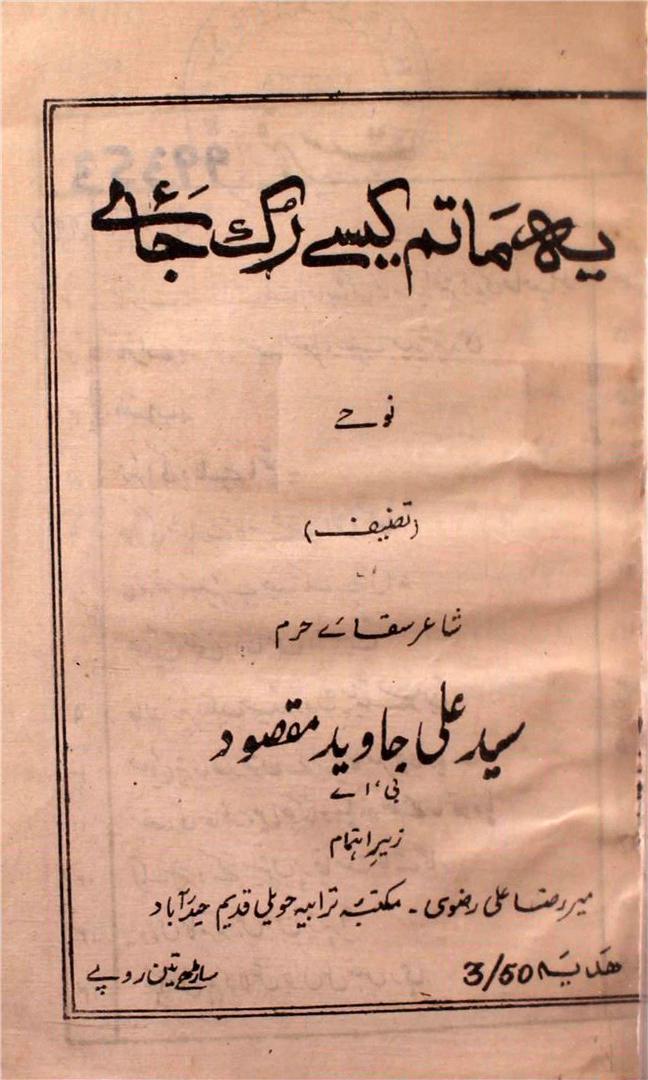 یہ ماتم کیسے رُک جَائے
نوحے
(تصنیف)
شاعر سقائے حرم
سید علی جاوید مقصود
بی، اے
زیرِ اہتمام
میر رضا علی رضوی ۔ مکتبۂ ترابیہ حویلی قدیم حیدرآباد
ھَدیَہ 3/50 ساڑھے تین روپے